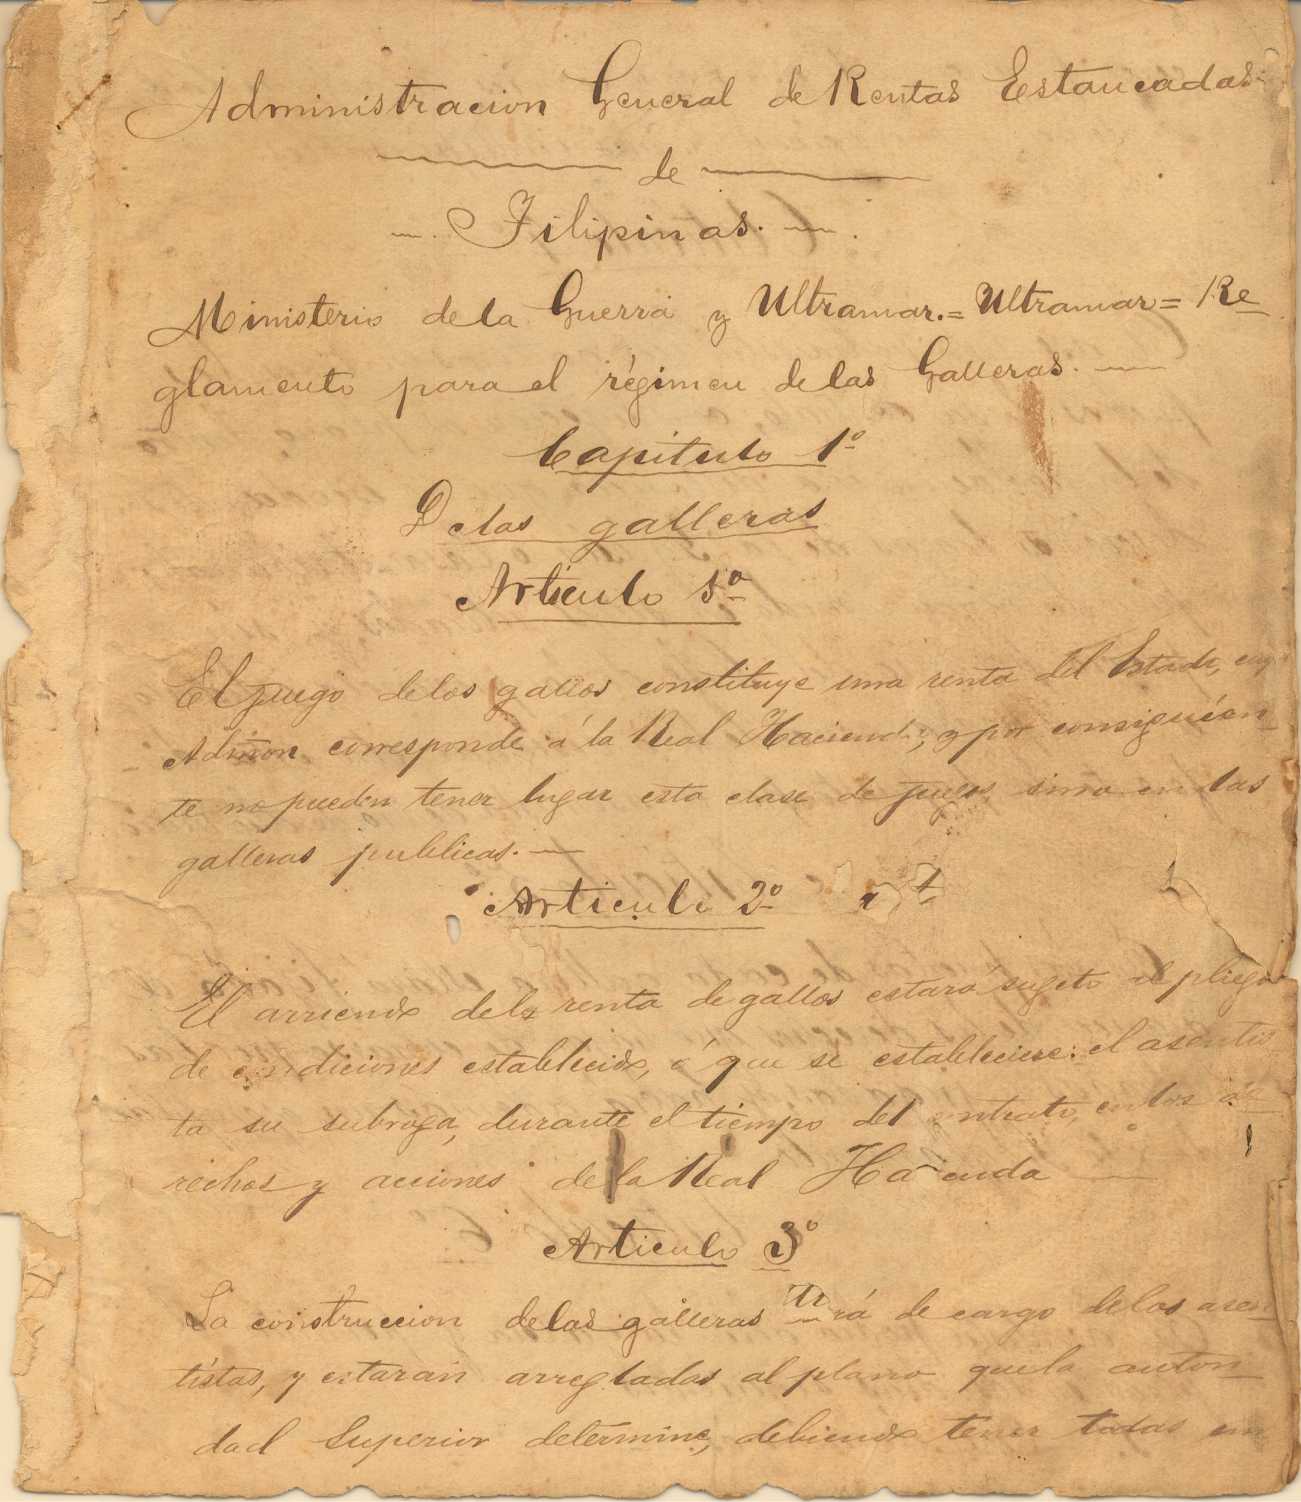 Administracion General de Rentas Estancadas
de
Filipinas.
Ministerio de la Guerra y Ultramar.= Ultramar= Re
glamento para el régimen de las Galleras.
Capitulo 1º
De las galleras
Articulo 1º
El juego de los gallos constituye una renta del Estado, cuya
Admon corresponde á la Real Hacienda, y por consiguien-
te no pueden tener lugar esta clase de juegos sino en las
galleras publicas.
Articulo 2º
El arriendo de la renta de gallos estará sugeto al pliego
de condiciones establecido, ó que se estableciere: el asentis
ta su subroga, durante el tiempo del contrato, en los de
rechos y acciones de la Real Hacienda
Articulo 3º
La construccion de las galleras será de cargo de los asen
tistas, y estarán arregladas al plano que la autori
dad Superior determine, debiendo tener todas un